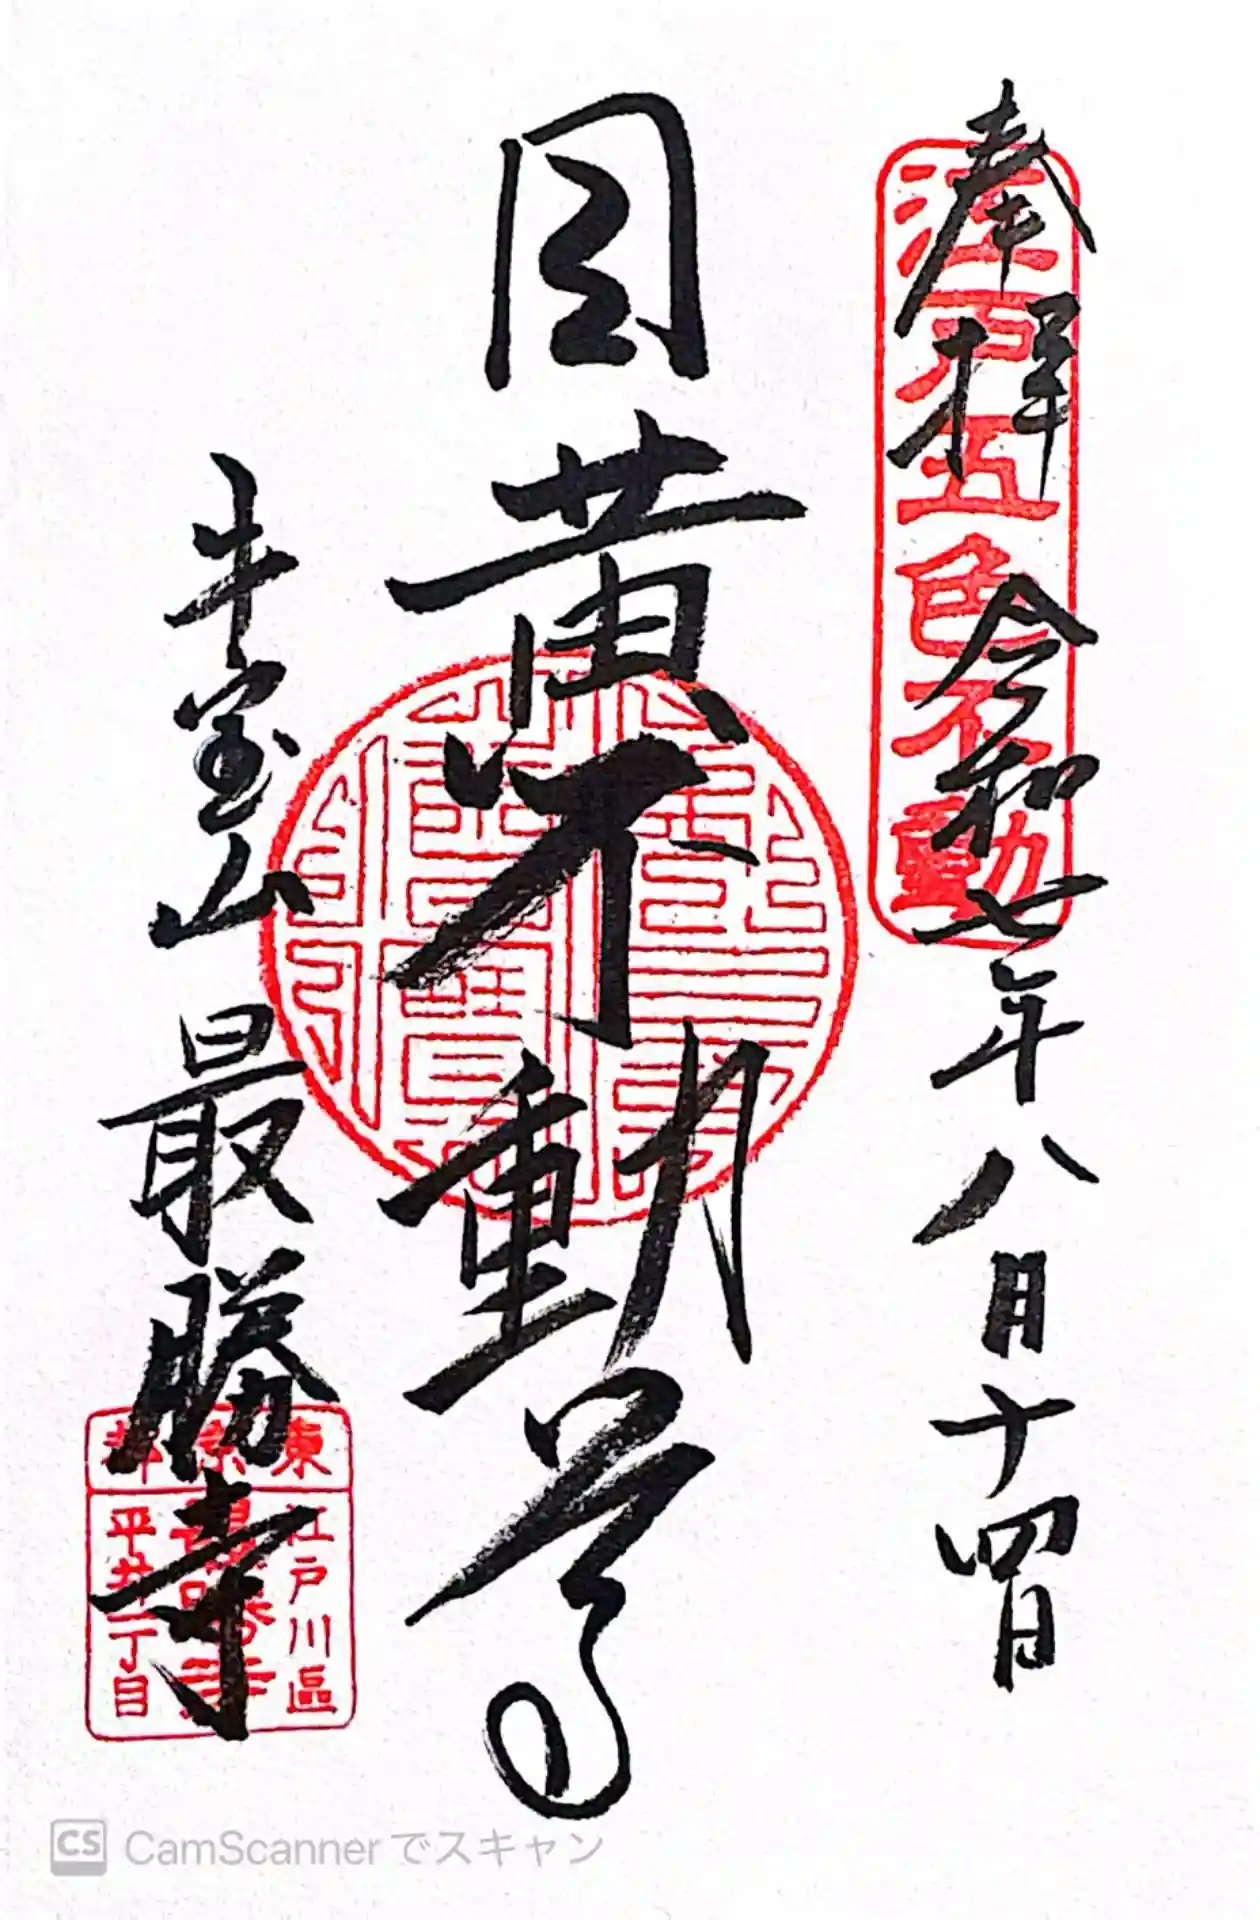 奉拝
令和七年八月十四日
江戸五色不動
目黄不動尊
牛宝山
最勝寺
東京都
江戸川區
最勝寺
平井一丁目
CS CamScannerでスキャン